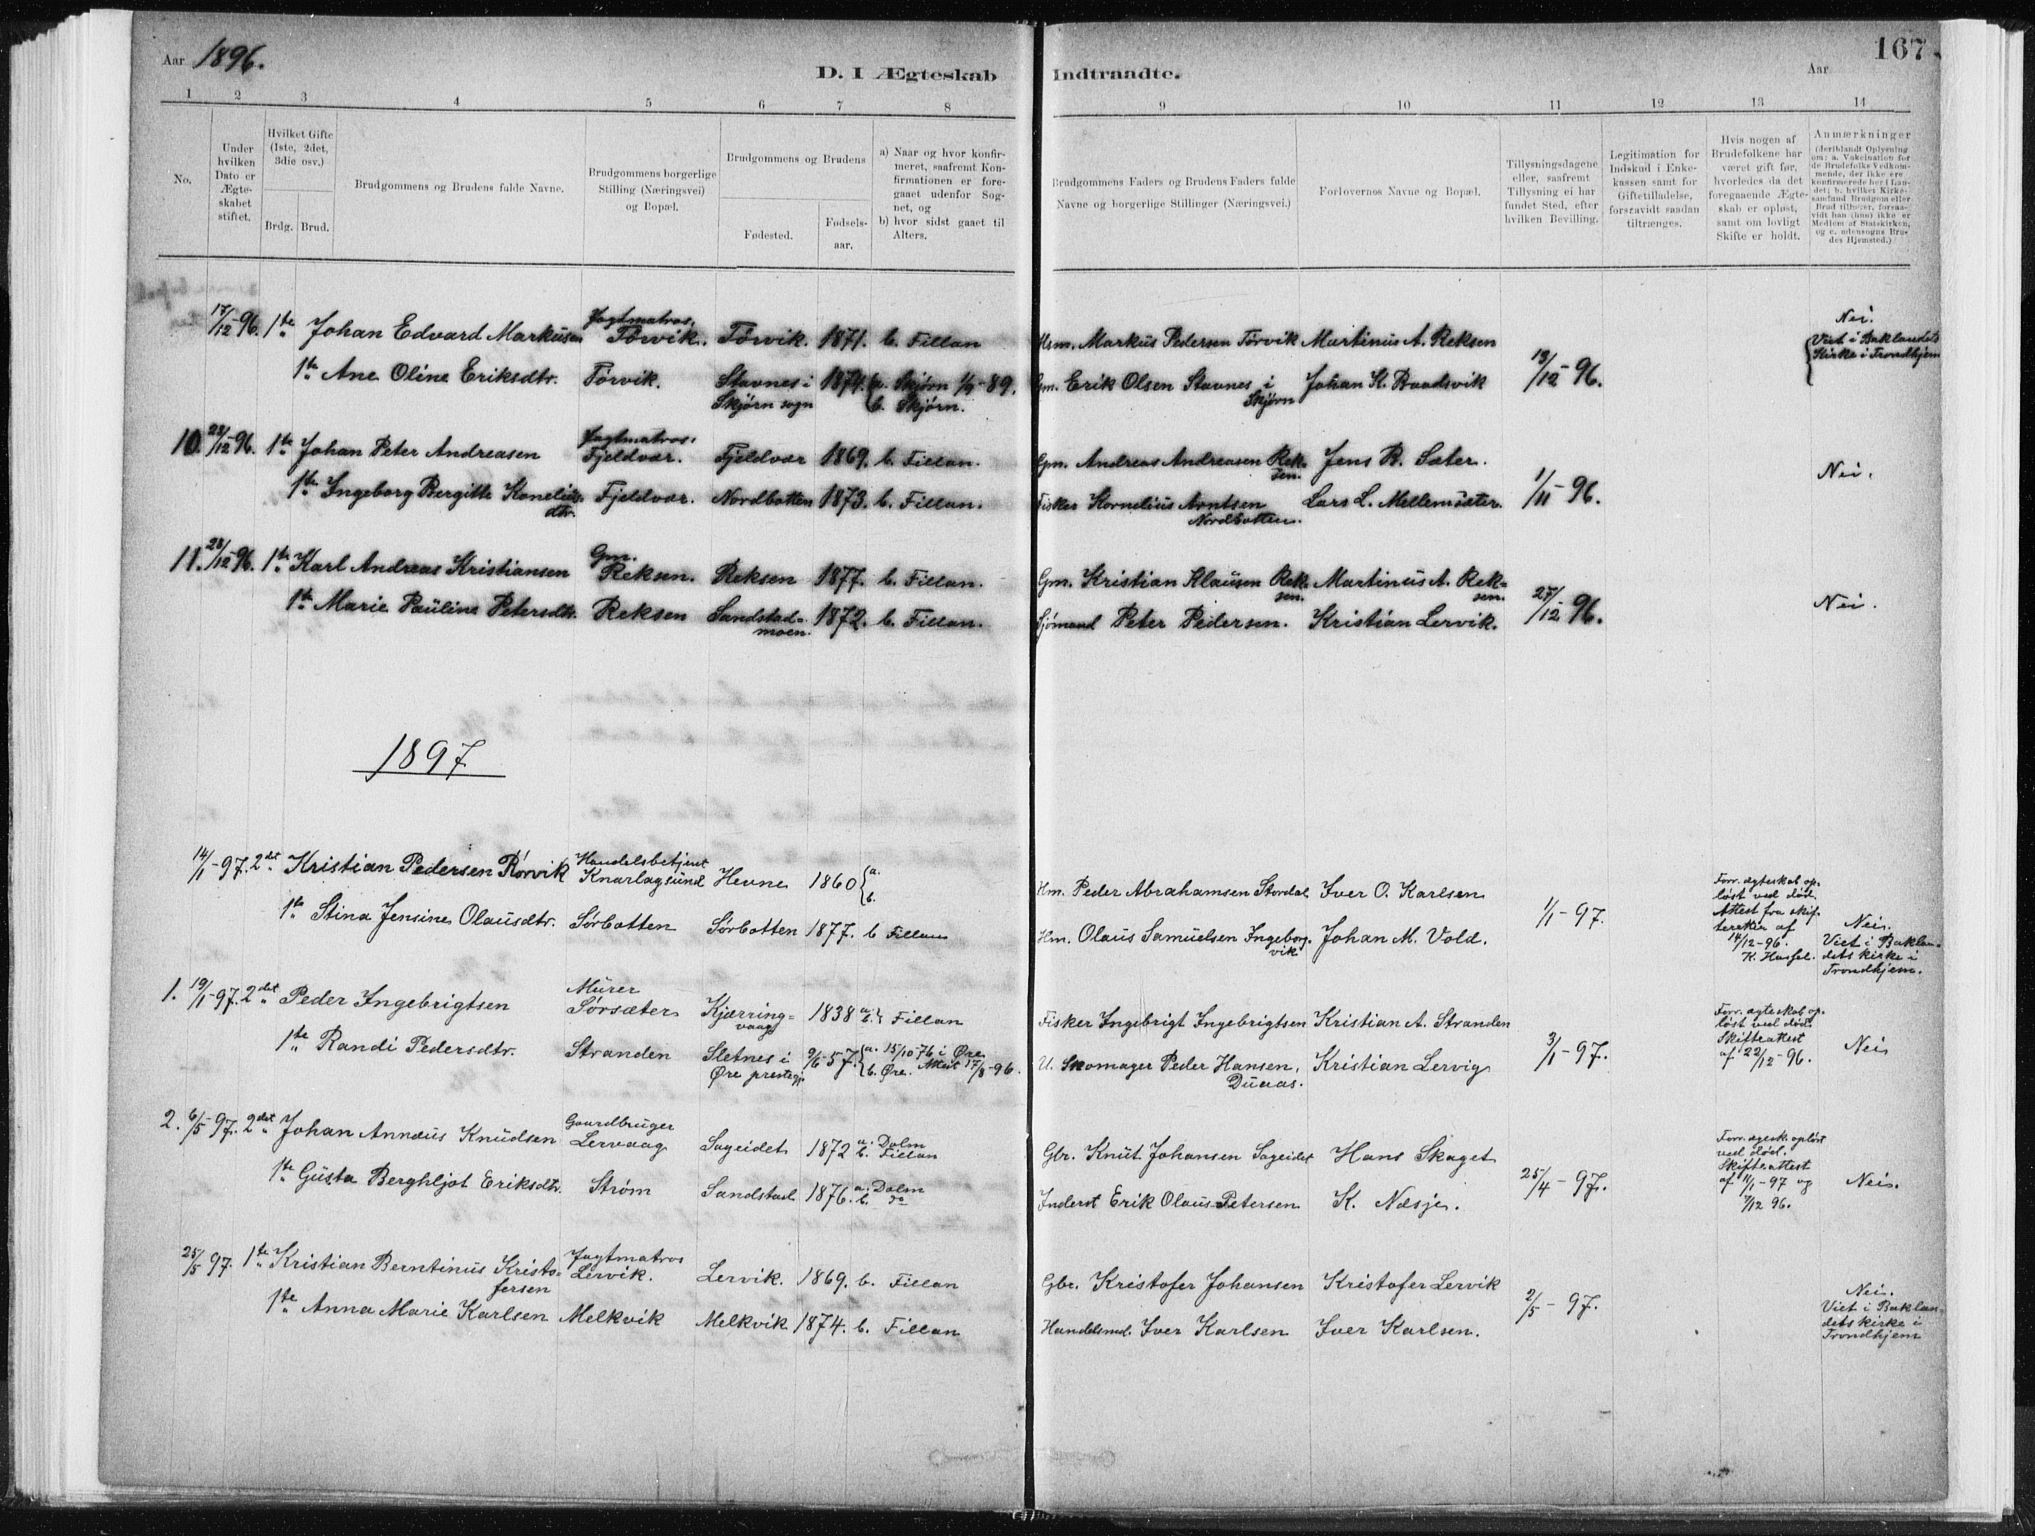 Aar 1896.
D. I Ægteskab
Indtraadte.
Aar
167
1 2 3 4 5 6 7 8
9 10 11 12 13 14
No.
Under hvilken Dato er Ægteskabet stiftet.
Hvilket Gifte (1ste, 2det, 3die osv.)
Brdg. Brud.
Brudgommens og Brudens fulde Navne.
Brudgommens borgerlige Stilling (Næringsvei) og Bopæl.
Brudgommens og Brudens
Fødested.
Fødsels-aar.
a) Naar og hvor konfir-
meret, saafremt Kon-
firmationen er fore-
gaaet udenfor Sog-
net, og
b) hvor sidst gaaet til
Alters.
Brudgommens Faders og Brudens Faders fulde
Navne og borgerlige Stillinger (Næringsvei.)
Forlovernes Navne og Bopæl.
Tillysningsdagene
eller, saafremt
Tillysning ei har
fundet Sted, efter
hvilken Bevilling.
Legitimation for
Indskud i Enke-
kassen samt for
Giftetilladelse,
forsaavidt saadan
tiltrænges.
Hvis nogen af
Brudefolkene har
været gift før,
hvorledes da det
foregaaende Ægte-
skab er opløst,
samt om lovligt
Skifte er holdt.
Anmærkninger
(deriblandt Oplysning
om: a. Vakcination for
de Brudefolks Vedkom-
mende, der ikke ere
konfirmerede her i Lan-
det; b. hvilket Kirke-
samfund Brudgom eller
Brud tilhører, forsaa-
vidt han (hun) ikke er
Medlem af Statskirken,
og c. udensogns Bru-
des Hjemsted.)
17/12-96. 1ste Johan Edvard Markusen Jagtmatros, Tørvik. Tørvik. 1871. b. Fillan
Hsm. Markus Pedersen Tørvik Martinus A. Reksen
Nei.
Viet i Baklandets
Kirke i Trondhjem
1ste Ane Oline Eriksdtr. Tørvik. Stavnes i Skjørn sogn 1874. a. Skjørn -89. b. Skjørn.
Gm. Erik Olsen Stavnes i Skjørn Johan K. Baadsvik 13/12-96.
10. 23/12-96. 1ste Johan Peter Andreasen Jagtmatros. Fjeldvær. Fjeldvær 1869. b. Fillan.
Gm. Andreas Andreasen Reksen. Jens B. Sæter.
1ste Ingeborg Bergitte Kornelius-dtr. Fjeldvær. Nordbotten 1873. b. Fillan.
Fisker Kornelius Arntsen Nordbotten. Lars L. Mellemsæter. 1/11-96. Nei.
11. 28/12-96. 1ste Karl Andreas Kristiansen Gm. Reksen. Reksen 1877. b. Fillan.
Gm. Kristian Klausen Reksen. Martinus A. Reksen.
1ste Marie Pauline Petersdtr. Reksen Sandstad-moen. 1872. b. Fillan.
Sjømand Peter Pedersen. Kristian Lervik. 27/12-96. Nei.
1897
14/1-97. 2det Kristian Pedersen Rørvik Handelsbetjent Knarlagsund Hevne 1860 a. b.
Hm. Peder Abrahamsen Stordal Iver O. Karlsen
1ste Stina Jensine Olausdtr. Sørbotten Sørbotten 1877. b Fillan
Hm. Olaus Samuelsen Ingeborgvik Johan M. Vold. 1/1-97.
Forr. ægteskab op-
løst ved død.
Attest fra skif-
teretten af
14/12-96.
Nei.
Viet i Baklan-
dets kirke i
Trondhjem.
1. 19/1-97. 2det Peder Ingebrigtsen Mürer Sørsæter Kjærring-vaag 1838 a. b. Fillan
Fisker Ingebrigt Ingebrigtsen Kristian A. Stranden
1ste Randi Pedersdtr. Stranden Sletnes i Øre prestegj. 9/6-57. a. 15/10-76 i Øre b. Øre. Attest 17/8-96.
U. Skomager Peder Hansen, Duaas. Kristian Lervig 3/1-97.
Forr. ægteskab op-
løst ved død.
Skifteattest
af 22/12-96.
Nei
2. 6/5-97. 2det Johan Annæus Knudsen Gaardbruger Lervaag Sageidet 1872 a. Dolm b. Fillan
Gbr. Knut Johansen Sageidet Hans Skaget
1ste Gusta Berghljot Eriksdtr. Strøm Sandstad 1876. a. Dolm b. do
Inderst Erik Olaus Petersen K. Næsje. 25/4-97.
Forr. ægtesk. opløst
ved død.
Skifteattest
af 11/1-97 og
7/12 96.
Nei.
25/5 97. 1ste Kristian Berntinus Kristofersen Jagtmatros Lervik. Lervik. 1869. b. Fillan
Gbr. Kristofer Johansen Kristofer Lervik
1ste Anna Marie Karlsen Melkvik Melkvik 1874. b. Fillan
Handelsmd. Iver Karlsen Iver Karlsen. 2/5-97.
Nei.
Viet i Baklan-
dets kirke i
Trondhjem